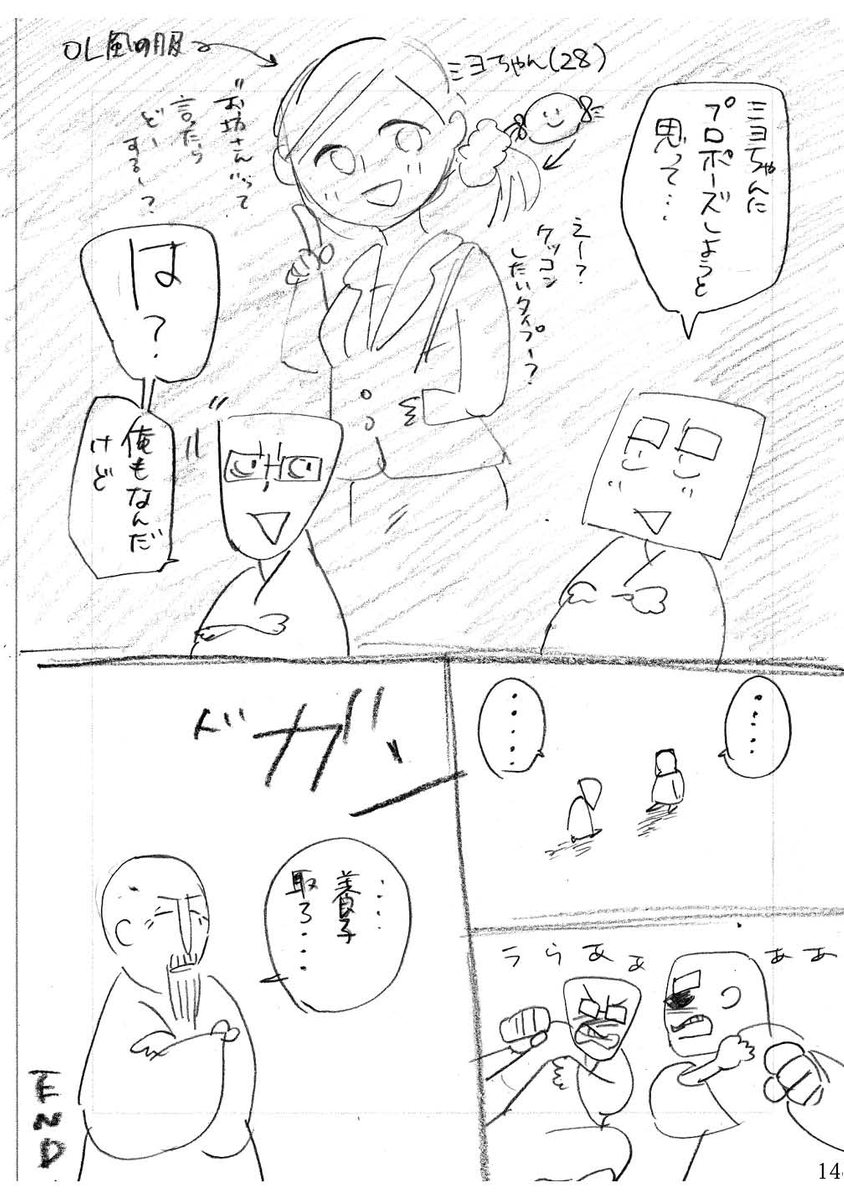 OL風の服
ミヨちゃん(28)
ミヨちゃんに
プロポーズしようと
思って…
えー?
ケッコン
したいタイプー?
"お坊さん"って
言ったら
どー
するー?
は?
俺もなんだ
けど
……
……
うらあぁ
ああ
ドガッ
……
養子
取ろ…
END
14